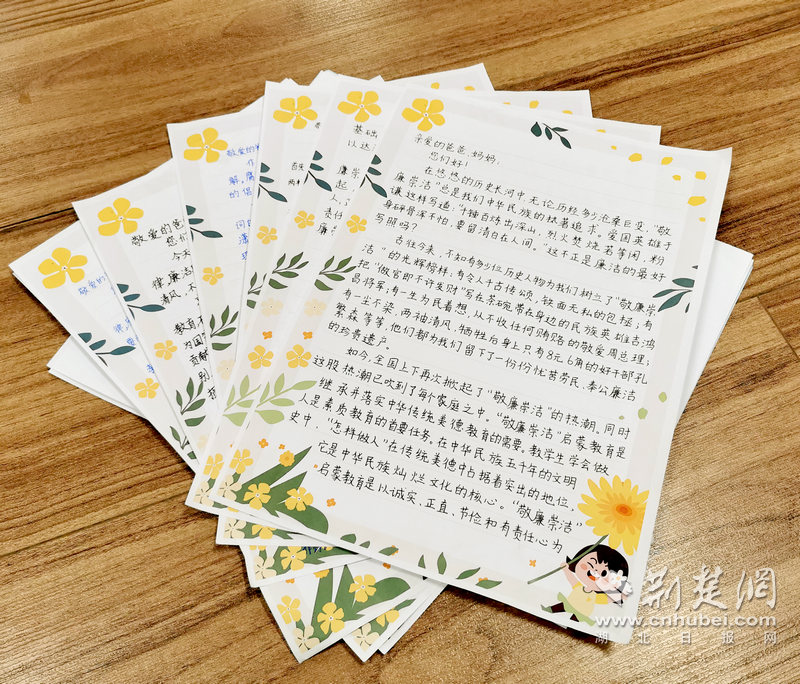 亲爱的爸爸、妈妈:
您们好!
在悠悠的历史长河中,无论历经多少沧桑巨变,“敬
廉崇洁”总是我们中华民族的执著追求。爱国英雄于
谦这样写道:“千锤百炼出深山,烈火焚烧若等闲,粉
身碎骨浑不怕,要留清白在人间。”这不正是廉洁的最好
写照吗?
古往今来,不知有多少位历史人物为我们树立了“敬廉崇
洁”的光辉榜样:有令人千古传颂,铁面无私的包拯;有
把“做官即不许发财”写在茶碗,带在身边的民族英雄吉鸿
昌将军;有一生为民着想,从不收任何贿赂的敬爱周总理;
有一尘不染,两袖清风,牺牲后身上只有8元6角的好干部孔
繁森等等,他们都为我们留下了一份份忧苦劳民、奉公廉洁
的珍贵遗产。
如今,全国上下再次掀起了“敬廉崇洁”的热潮。同时
这股热潮已吹到了每个家庭之中。“敬廉崇洁”启蒙教育是
继承并落实中华传统美德教育的需要。教学生学会做
人是素质教育的首要任务。在中华民族五千年的文明
史中,“怎样做人”在传统美德中占据着突出的地位,
它是中华民族灿烂文化的核心。“敬廉崇洁”
启蒙教育是以诚实、正直、节俭和有责任心为
基础
以达
廉崇
起
人,
责任
廉
敬爱的
解,
的倡
敬爱的爸
您们
今天
律,廉洁
清风,不
教育
为国
贡献
别
敬爱的
荆楚网
www.cnhubei.com
湖北日报网